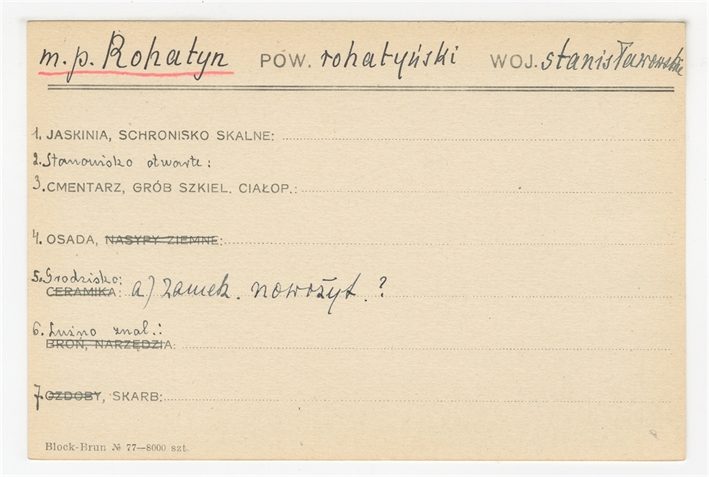 m.p. Rohatyn POW. rohatyński WOJ. stanisławowskie
1. JASKINIA, SCHRONISKO SKALNE:
2. Stanowisko otwarte:
3. CMENTARZ, GRÓB SZKIEL. CIAŁOP.:
4. OSADA, NASYPY ZIEMNE:
5. Grodzisko:
CERAMIKA: a) zamek. nowożyt. ?
6. Luźno znal.:
BROŃ, NARZĘDZIA:
7. OZDOBY, SKARB:
Block-Brun № 77—8000 szt.